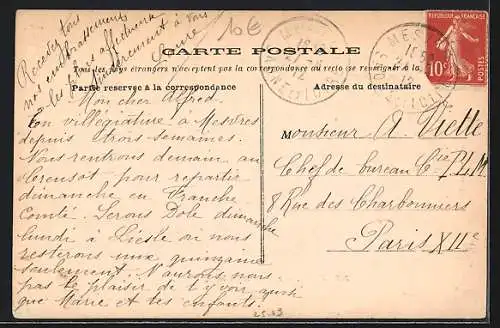 Recevez tous
nos embrassements
les plus affectueux
tendrement à vous
10€
CARTE POSTALE
Tous les pays étrangers n'acceptent pas la correspondance au recto se renseigner à la
Partie réservée à la correspondance
Adresse du destinataire
RÉPUBLIQUE FRANÇAISE
10c
POSTES
Mon cher Alfred.
En villégiature à Mesvres
depuis trois semaines.
Nous rentrons demain au
Creusot pour repartir
dimanche en Franche
Comté. Serons Dole dimanche
lundi à Liesle où nous
resterons une quinzaine
seulement. N'aurons-nous
pas le plaisir de t'y voir ainsi
que Marie et tes enfants.
Monsieur A. Viette
Chef de bureau Cie P.L.M.
8 Rue des Charbonniers
Paris XIIe